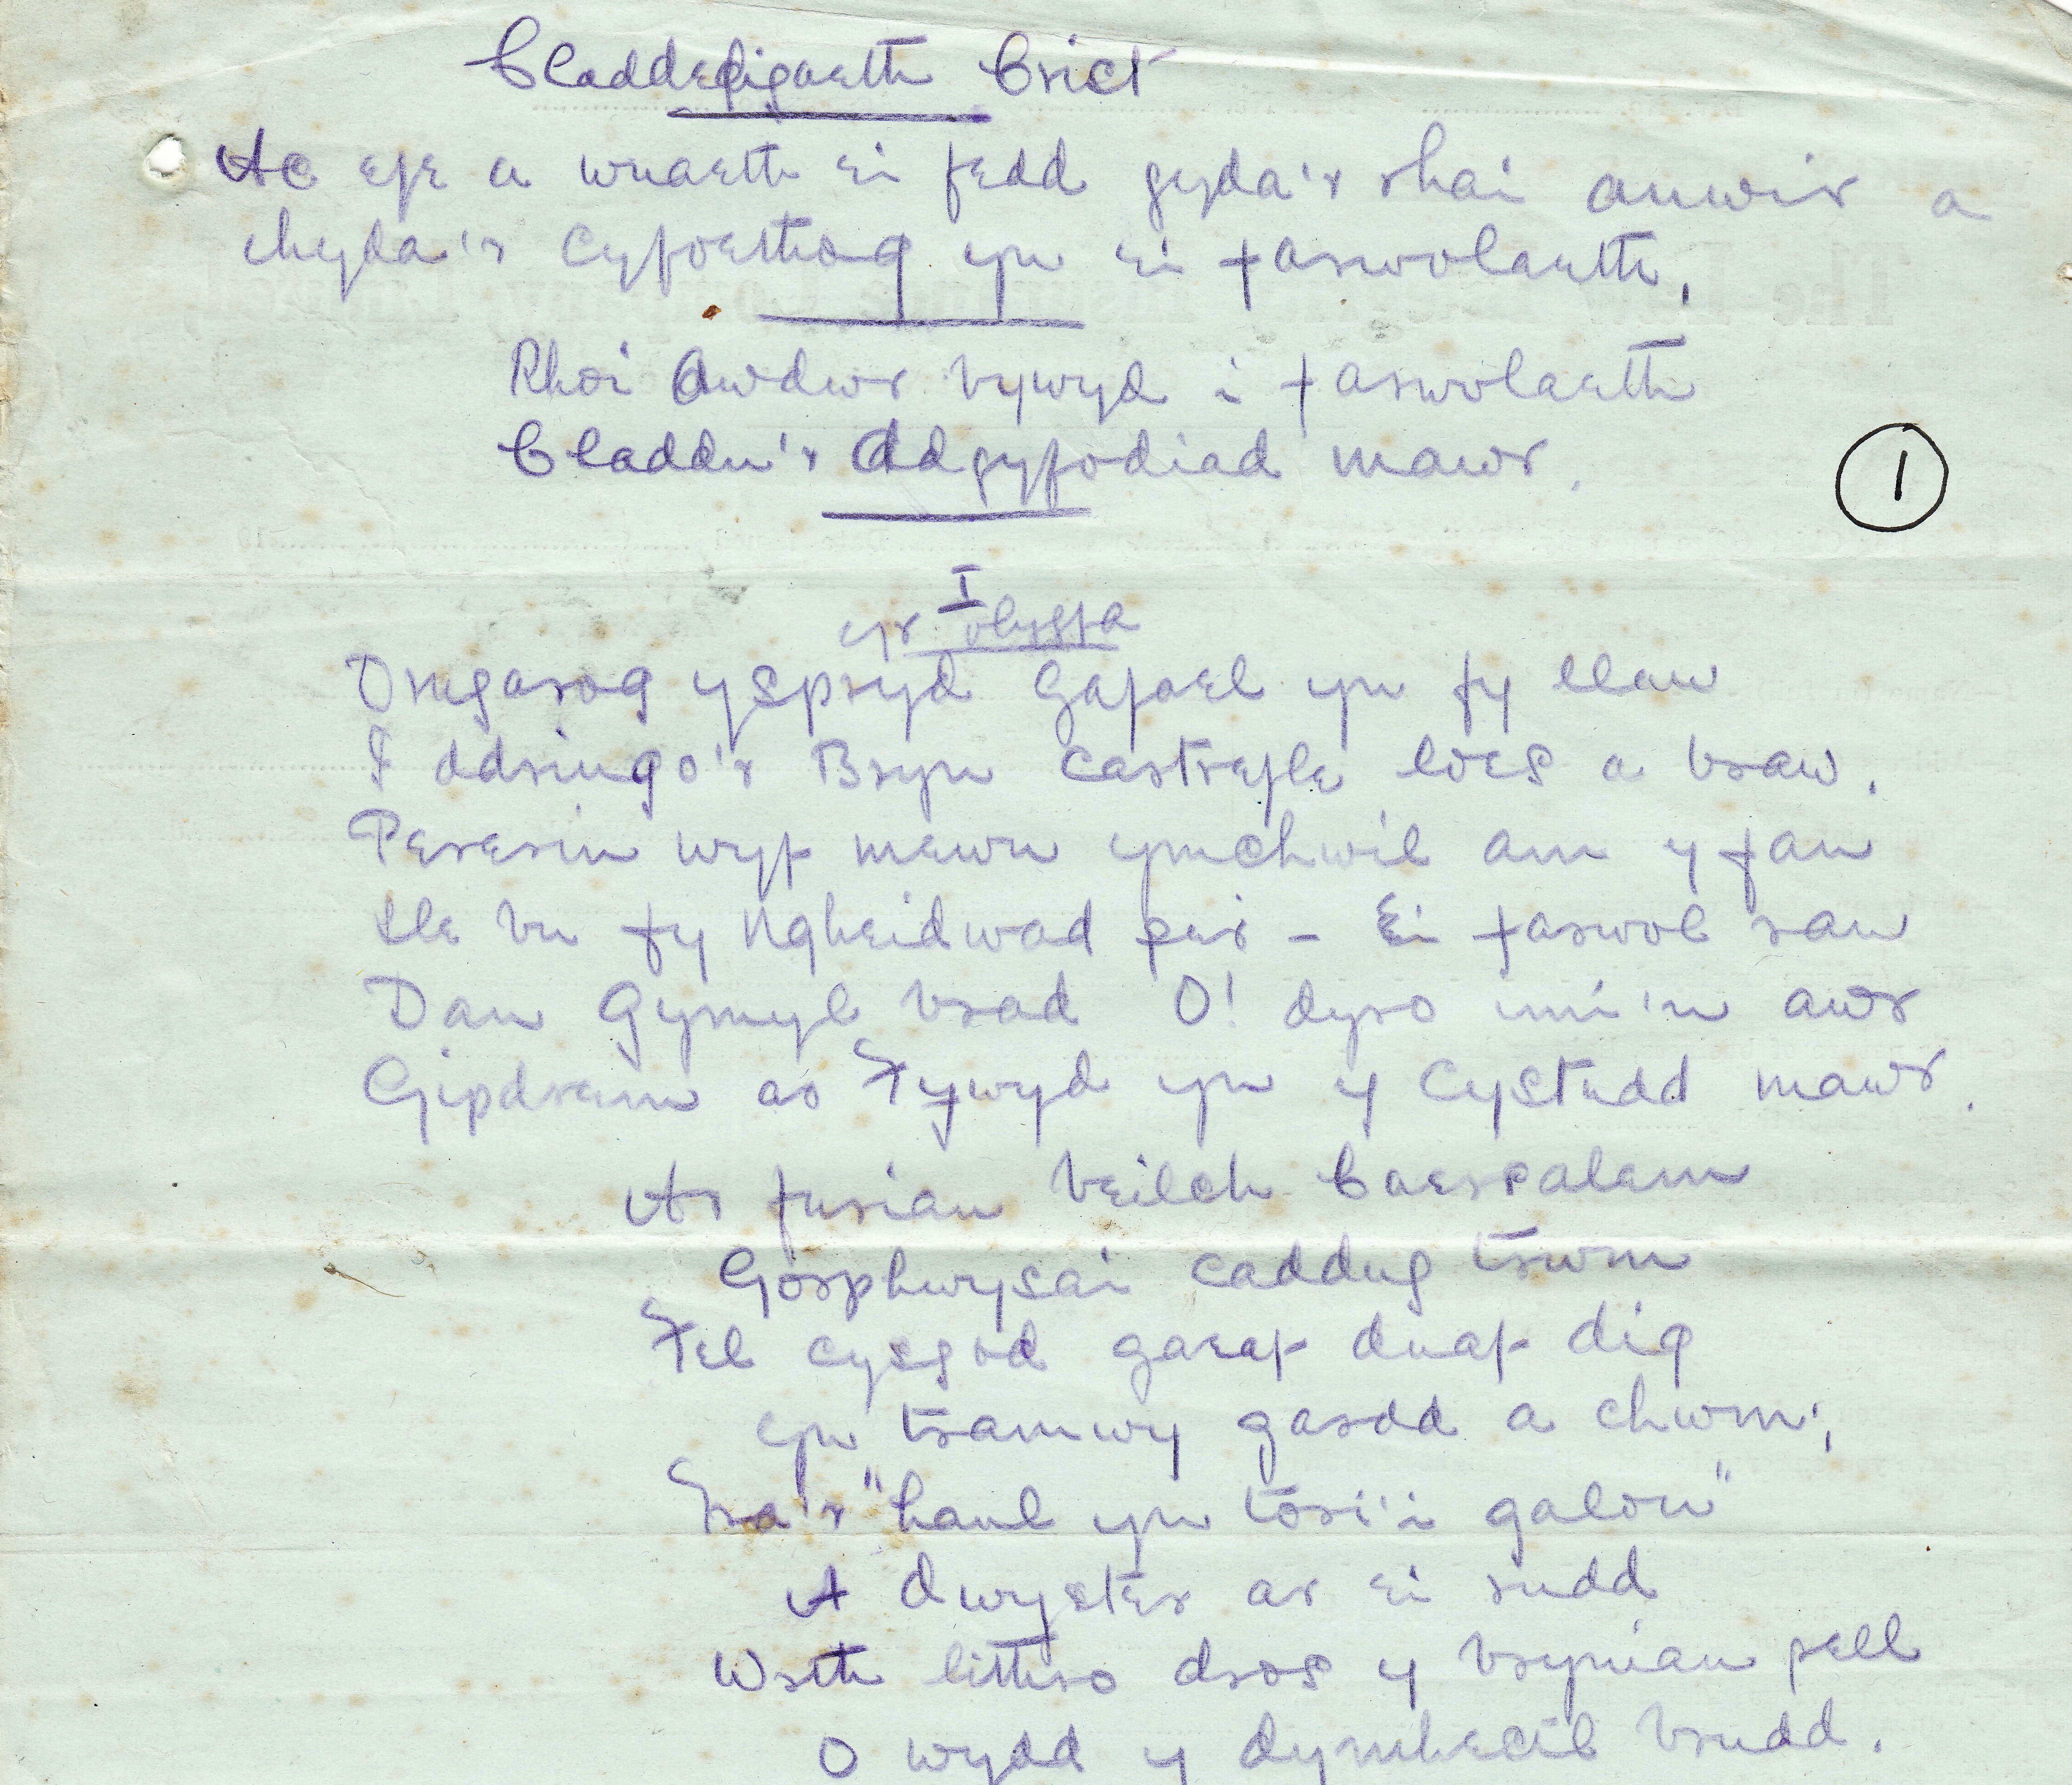 Claddedigaeth Crist
Ac efe a wnaeth ei fedd gyda'r rhai anwir a
chyda'r cyfoethog yn ei farwolaeth.
Rhoi Awdwr bywyd i farwolaeth
Claddu'r Adgyfodiad mawr.
1
I
yr olygfa
Drugarog yspryd gafael yn fy llaw
I ddringo'r Bryn Castrefle loes a braw.
Pererin wyf mewn ymchwil am y fan
Lle bu fy Ngheidwad per - Ei farwol ran
Dan gymyl brad O! dyro imi'n awr
Gipdrem ar Fywyd yn y Cystudd mawr.
Ar furiau beilch Caersalem
Gorphwysai caddug trwm
Fel cysgod gaeaf duaf dig
yn tramwy gardd a chwm;
Tra'r "haul yn tori'i galon"
A dwyster ar ei rudd
Wrth lithro dros y bryniau pell
O wydd y dymhestl brudd.